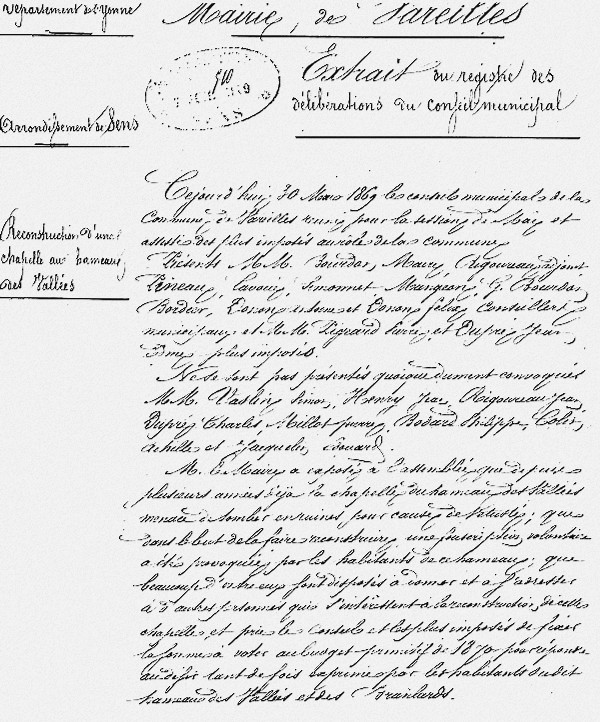 Département de l'Yonne
Mairie de Vareilles
Extrait du registre des
délibérations du conseil municipal
Arrondissement de Sens
Reconstruction d'une
chapelle au hameau
des Vallées
Cejourd'hui 30 Mai 1869 le conseil municipal de la
Commune de Vareilles réuni pour la session de Mai et
assisté des plus imposés au rôle de la commune
Présents M.M. Bourdon, Maire, Rigoureau adjoint
Simonnet
Félix Conseillers
municipaux et M.M. Pierre et Dupré Jean
plus imposés.
Ne se sont pas présentés quoique dument convoqués
M.M. Simon, Henry Rigoureau Jean
Dupré Charles, Millot pierre, Bodard Philippe,
achille et Jacquelin édouard.
M. le Maire a exposé à l'assemblée que depuis
plusieurs années déja la chapelle du hameau des Vallées
menace de tomber en ruines pour cause de vétusté ; que
dans le but de la faire reconstruire une souscription volontaire
a été provoquée par les habitants de ce hameau ; que
beaucoup d'entre eux sont disposés à donner et à s'adresser
à d'autres personnes qui s'intéressent à la reconstruction de cette
chapelle et prie le conseil et les plus imposés de fixer
la somme à voter au budget primitif de 1870 pour répondre
au désir tant de fois exprimé par les habitants du dit
hameau des Vallées et des Brûlards.